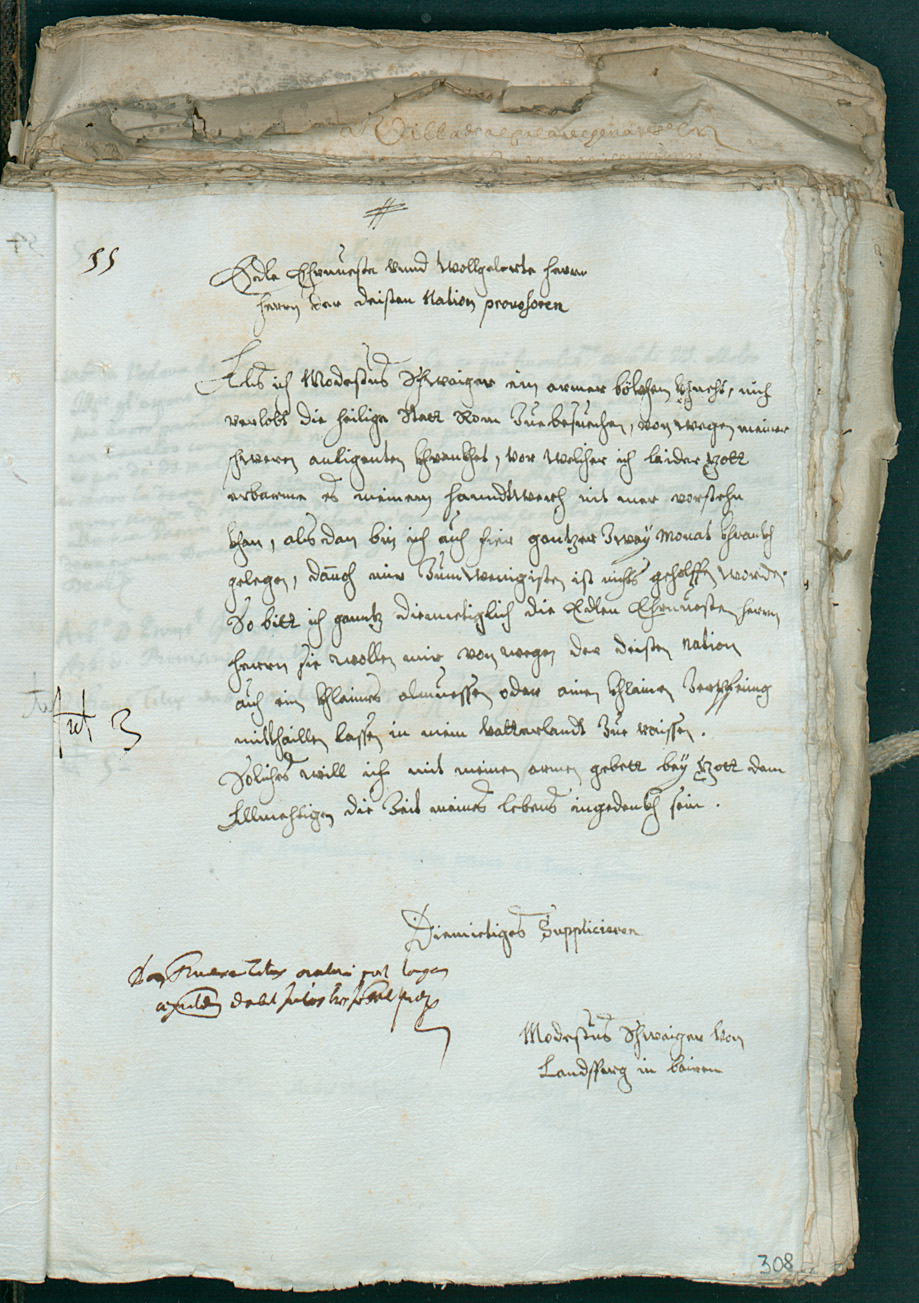 55
Edle Ehrnueste vnnd Wollgelerte herrn
herrn der deisten Nation provosoren
Als ich Modestus Schwaiger ein armer bökhen khnecht, mich
verlobt die heilige Statt Rom Zue besuechen, von wegen meiner
schweren anligenten khranckhet, vor welcher ich leider Gott
erbarme es meinem handtwerch nit mer vorstehn
khan, als dan bin ich auch hier gantzer Zway Monat khranckh
gelegen, danoch mir Zum wenigisten ist nichts geholffen worden.
So bitt ich gantz diemietiglich die Edlen Ehrnuesten herrn
herrn sie wollen mir von wegen der deisten nation
auch ein khleines almuessen oder ainen khlainen Zerpfening
mitthaillen lassen in mein Vatterlandt Zue raissen.
Soliches will ich mit meinen armen gebett bey Gott dem
Allmechtigen die Zeit meines lebens ingedenckh sein.
3
Diemietiges Supplicieren
Modestus Schwaiger von
Landsperg in bairen
308